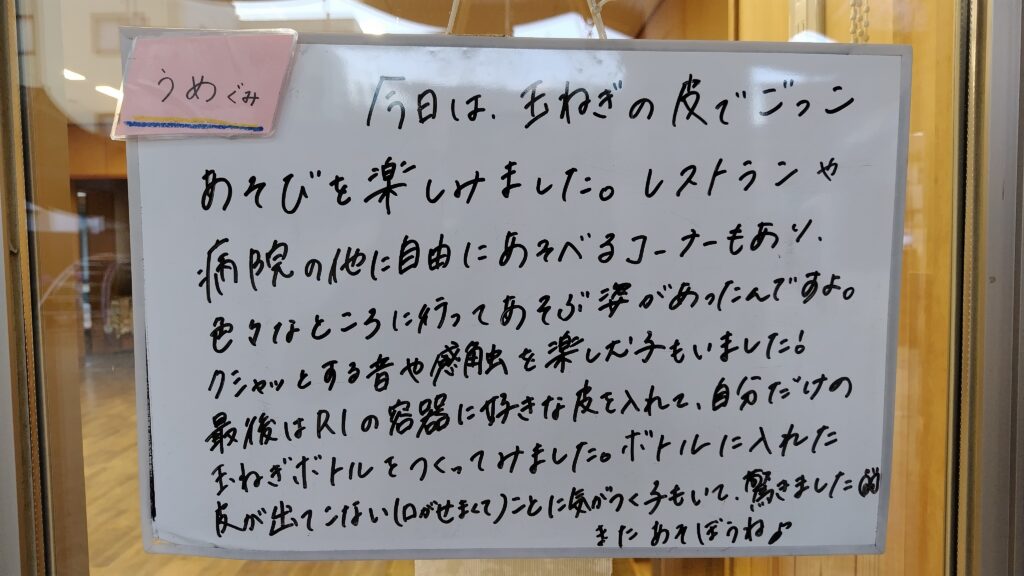 うめぐみ
今日は、玉ねぎの皮でごっこ
あそびを楽しみました。レストランや
病院の他に自由にあそべるコーナーもあり、
色々なところに行ってあそぶ姿があったんですよ。
クシャッとする音や感触を楽しむ子もいました!
最後はR1の容器に好きな皮を入れて、自分だけの
玉ねぎボトルをつくってみました。ボトルに入れた
皮が出てこない(口がせまくて)ことに気がつく子もいて、驚きました
またあそぼうね♪